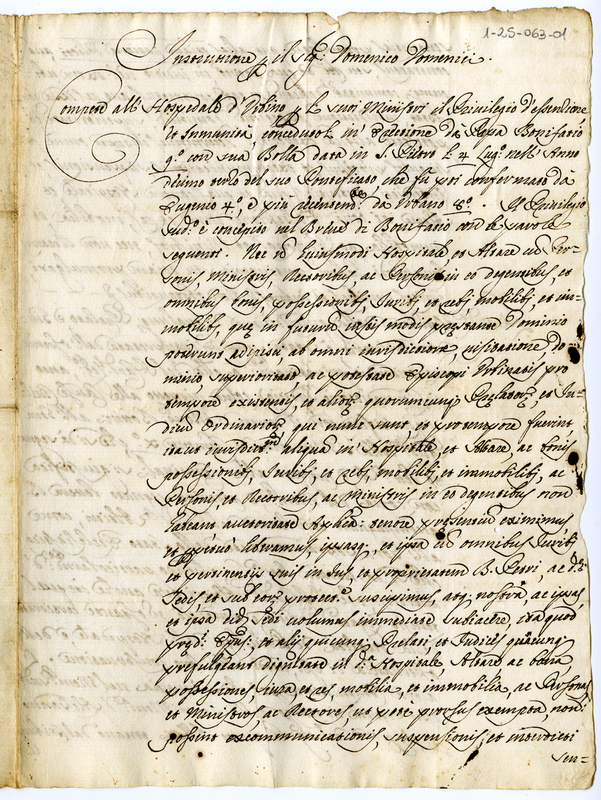 1-25-063-01
Instruttione p il Sig.r Domenico Domenici.
Compete all' Hospedale d'Urbino p li suoi Ministri il Privilegio d'essentione
et Immunità concedutoli in erettione da Papa Bonifatio
9.o con sua Bolla data in S. Pietro li 4 Lug.o nell'Anno
Eugenio 4.o, e più da Urbano 8.o. Il Privilegio
Jud.o è concepito nel Breve di Bonifatio con le parole
seguenti. Nec n Huiusmodi Hospitale et Altare cu Per-
sonis Ministris, Rectoribus, ac Personis in eo degentibus, et
omnibus bonis, possessionib;, Iurib;, et reb;, mobilib;, et im-
mobilib;, que in futurum iustis modis Domino
poterunt adipisci ab omni iurisdictione, visitatione, do-
minio superioritate, ac potestate Episcopi Urbinatis pro
tempore existentis, et alior quorumcunq; Prelator, et Iu-
dicu Ordinarior, qui nunc sunt, et pro tempore fuerint
itaut iurisdict.nem aliquam in Hospitale, et Altare, ac bonis
possessionib;, Iurib;, et reb;, mobilib;, et immobilib;, ac
Personis, et Rectoribus, ac Ministris in eo degentibus non
habeant auctoritate Aplica: tenore presentium eximimus,
et ppetuo liberamus, ipsasq;, et ipsa cu omnibus Iurib;
et pertinentijs suis in Ius, et proprietatem B. Petri, ac d.e
Sedis et sub eor protect.e suscipimus, atq; nostra, ac ipsas,
et ipsa dict Sedi volumus immediate subiacere, ita quod
pred.s Epus: et alij quicunq; Prelati, et Iudices quacunq;
prefulgeant dignitate in d.o Hospitale, Altare ac bona,
possessiones, iura et res, mobilia, et immobilia, ac Personas
et Ministros ac Rectores, ut pote prorsus exempta, non
possint excommunicationis, suspensionis, et interdicti
sen=